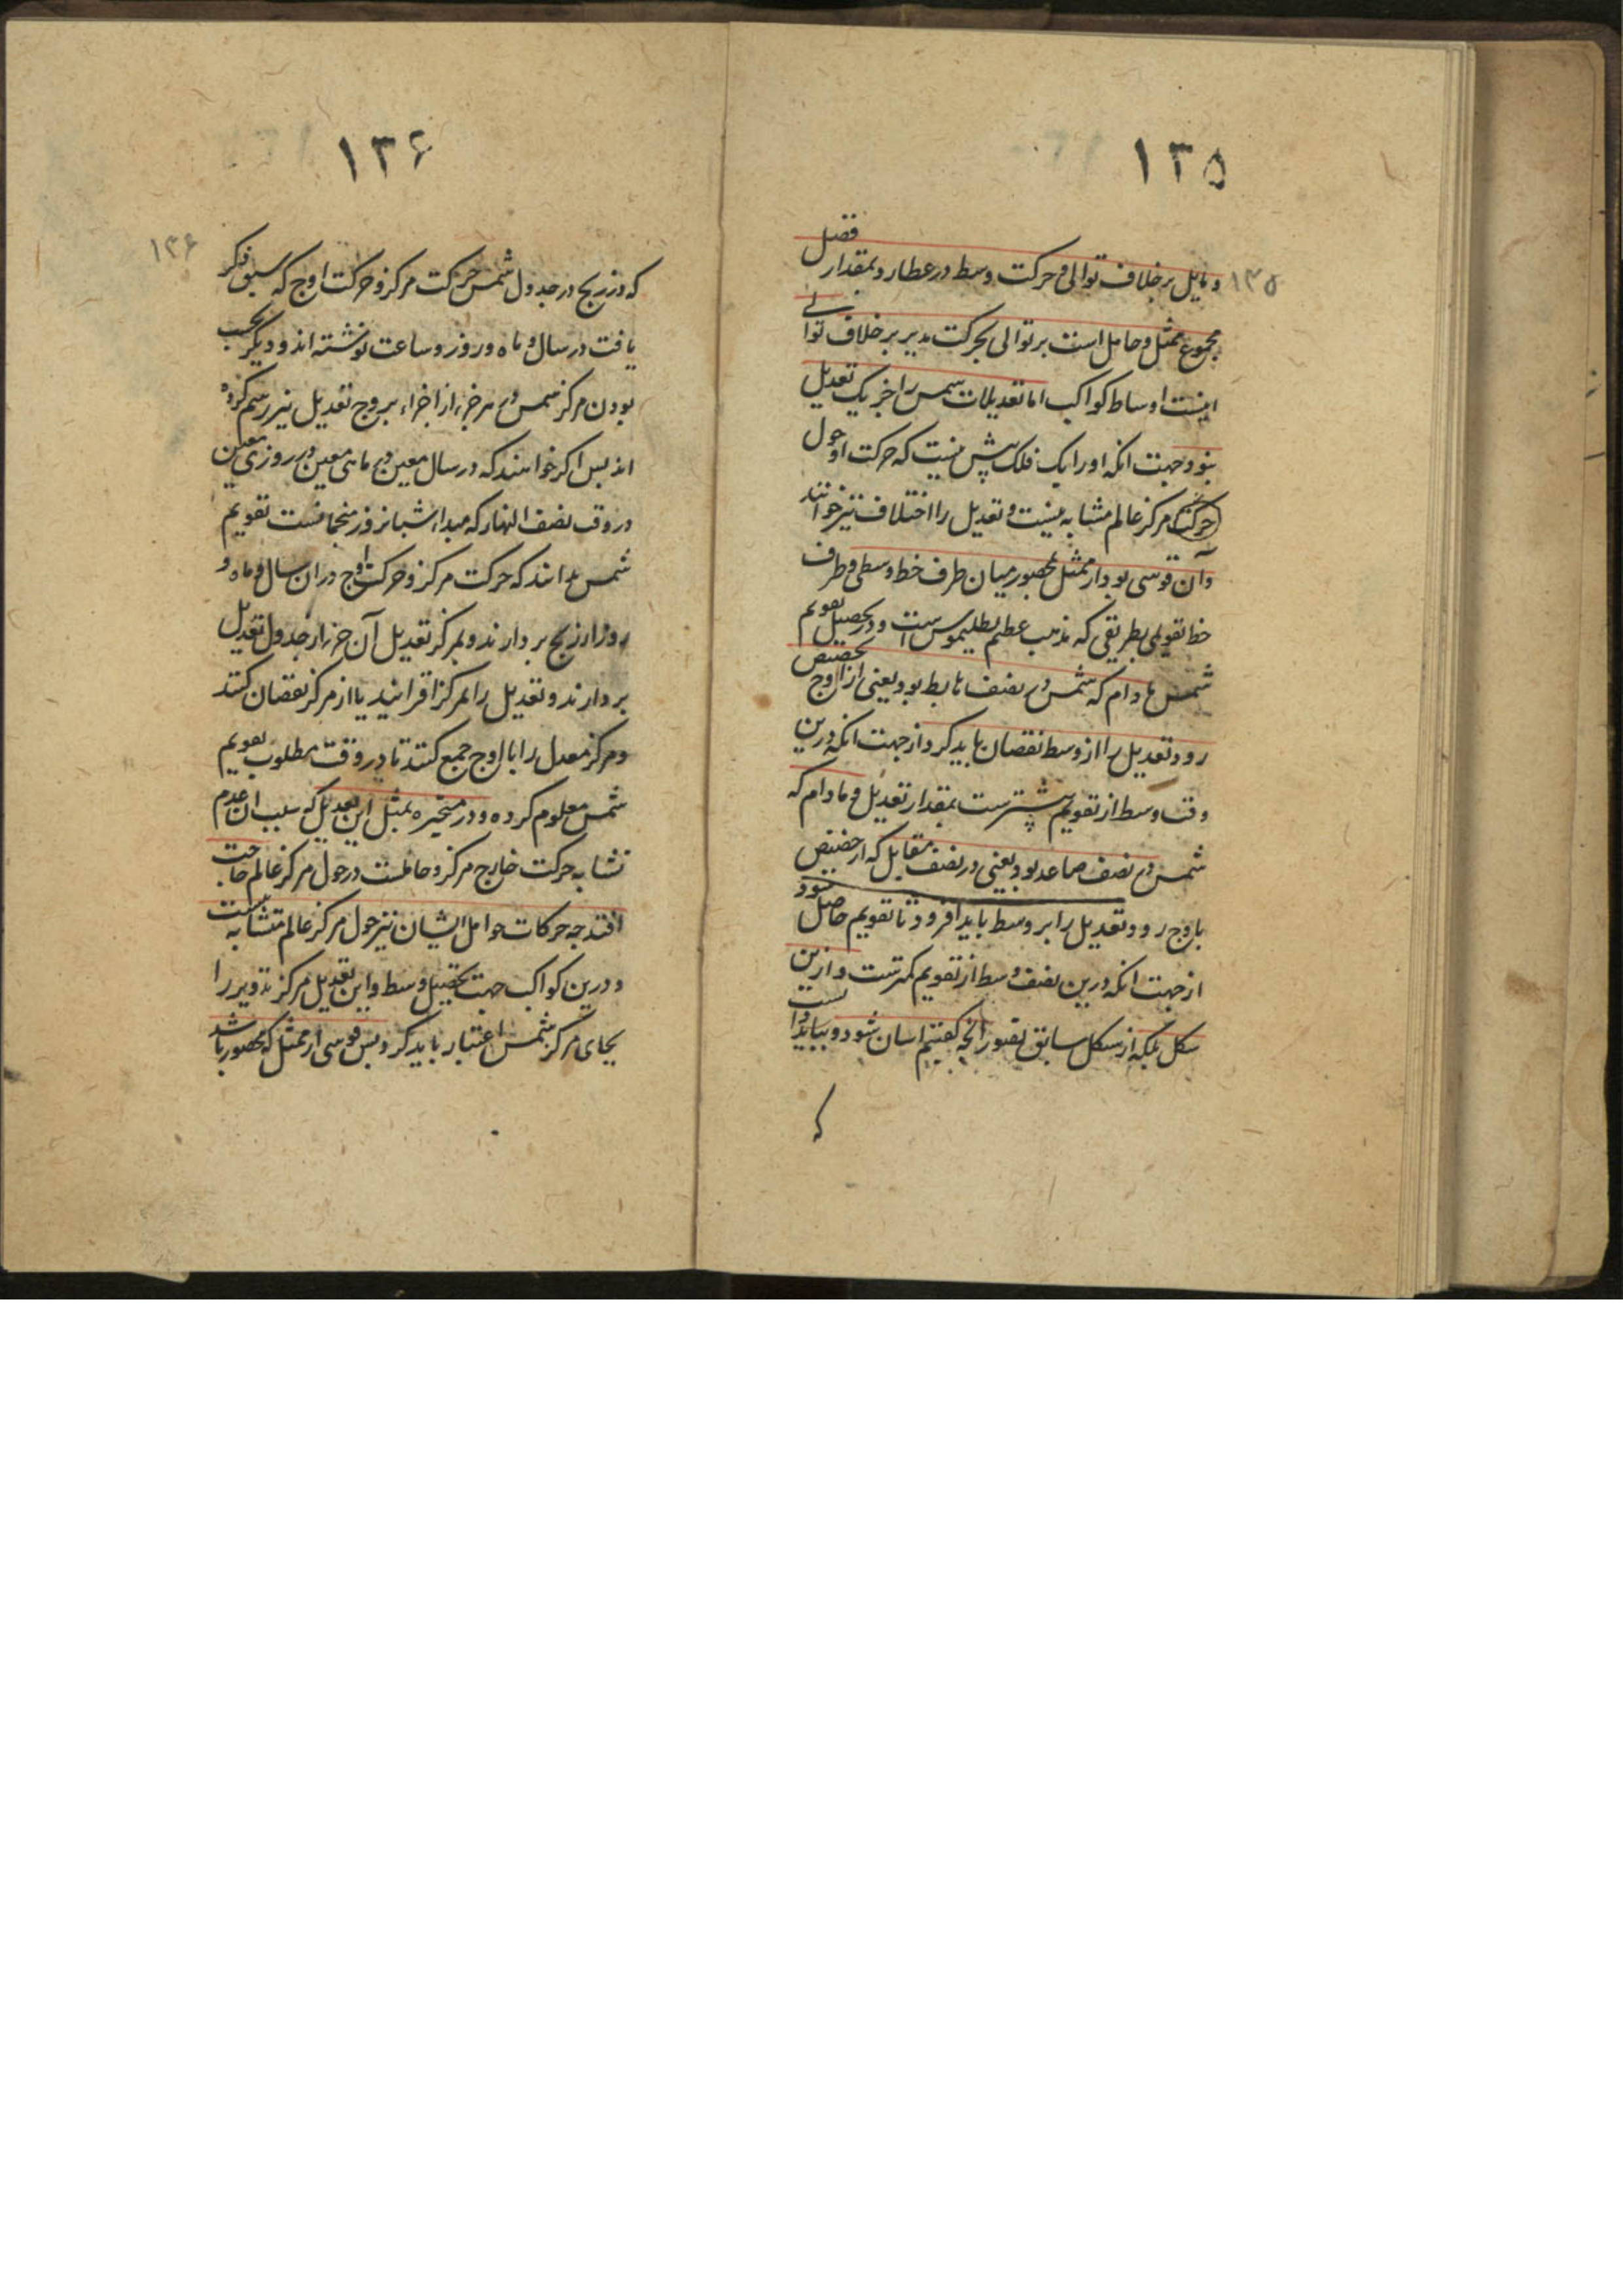 ۱۳۵
۱۳۵
و مایل بر خلاف توالی و حرکت وسط در عطارد بمقدار فضل
مجموع ممثل و حامل است بر توالی بحرکت مدیر بر خلاف توالی
اینست اوساط کواکب اما تعدیلات شمس را جز یک تعدیل
نبود جهت انکه او را یک فلک بیش نیست که حرکت او حول
مرکز عالم متشابه نیست و تعدیل را اختلاف نیز خوانند
و آن قوسی بود از ممثل محصور میان طرف خط وسطی و طرف
خط تقویمی بطریقی که مذهب عظیم بطلیموس است و در تحصیل تقویم
شمس مادام که شمس در نصف هابط بود یعنی از اوج بحضیض
رود تعدیل را از وسط نقصان باید کرد از جهت انکه درین
وقت وسط از تقویم بیشترست بمقدار تعدیل و مادام که
شمس در نصف صاعد بود یعنی در نصف مقابل که از حضیض
باوج رود تعدیل را بر وسط باید افزود تا تقویم حاصل شود
از جهت انکه درین نصف وسط از تقویم کمترست و ازین
شکل بلکه از شکل سابق تصور انچه کفتیم اسان شود و بباید دانست
که
۱۳۶
۱۳۶
که در زیج در جدول شمس حرکت مرکز و حرکت اوج که سبق ذکر
یافت در سال و ماه و روز و ساعت نوشته اند و دیگر بحسب
بودن مرکز شمس در هر جزء از اجزاء بروج تعدیل نیز رسم کرده
اند پس اکر خواهند که در سال معین و در ماهی معین و در روزی معین
در وقت نصف النهار که مبداء شبانروز منجمانست تقویم
شمس بدانند که حرکت مرکز و حرکت اوج در ان سال و ماه و
روز از زیج بردارند و بمرکز تعدیل آن جزء از جدول تعدیل
بردارند و تعدیل را بمرکز افزایند یا از مرکز نقصان کنند
و مرکز معدل را با اوج جمع کنند تا در وقت مطلوب تقویم
شمس معلوم کرده و در متحیره بمثل این تعدیل که سبب ان عدم
تشابه حرکت خارج مرکز و حاملست در حول مرکز عالم حاجت
افتد چه حرکات حوامل ایشان نیز حول مرکز عالم متشابه نیست
و درین کواکب جهت تحصیل وسط و این تعدیل مرکز تدویر را
بجای مرکز شمس اعتبار باید کرد و پس قوسی از ممثل که محصور باشد